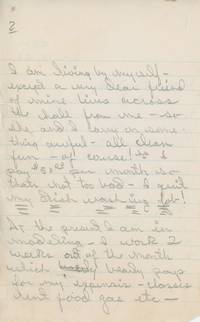 2
I am living by myself -
except a very dear friend
of mine lives across
the hall from me - so
she and I carry on some-
thing awful - all clean
fun - of course! So I
pay per month so
thats not too bad - I quit
my dish washing job!
At the present I am in
modeling - I work 2
weeks out of the month
which barely pays
for my expenses - classes
rent food gas etc -